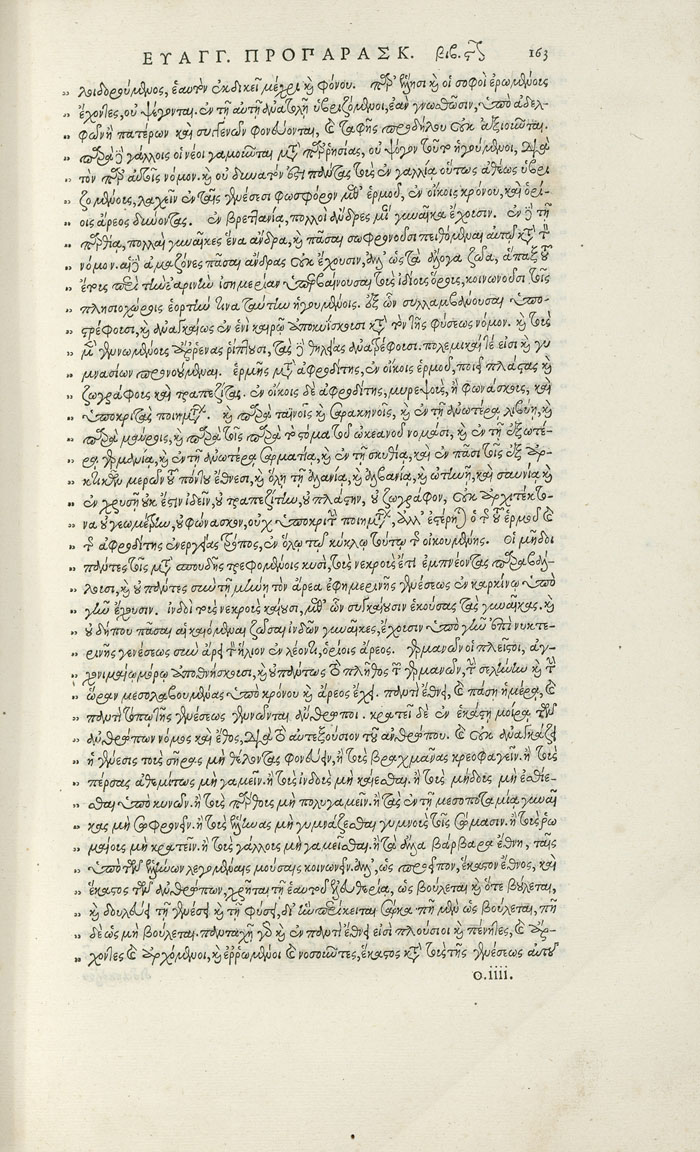 ΕΥΑΓΓ. ΠΡΟΠΑΡΑΣΚ. βιβ. ϛʹ 163
λοιδορούμενος, ἑαυτὸν ἐκδικεῖ μέχρι καὶ φόνου. παρ' ἕλλησι καὶ οἱ σοφοὶ ἐρωμένους
ἔχοντες, οὐ ψέγονται. ἐν τῇ αὐτῇ ἀνατολῇ ὑβριζόμενοι, ἐὰν γνωσθῶσιν, ὑπὸ ἀδελ-
φῶν ἢ πατέρων καὶ συγγενῶν φονεύονται, καὶ ταφῆς προδήλου οὐκ ἀξιοιῦται.
παρὰ δὲ γάλλοις οἱ νέοι γαμοιῦται μετὰ παρρησίας, οὐ ψόγον τοῦτο ἡγούμενοι, διὰ
τὸν παρ' αὐτοῖς νόμον. καὶ οὐ δυνατόν ἐστι πάντας τοὺς ἐν γαλλίᾳ οὕτως ἀθέως ὑβρι
ζομένους, λαχεῖν ἐν ταῖς γενέσεσι φωσφόρον μεθ' ἑρμοῦ, ἐν οἴκοις κρόνου, καὶ ὁρί-
οις ἄρεος δύνοντας. ἐν βρεττανίᾳ, πολλοὶ ἄνδρες μίαν γυναῖκα ἔχουσιν. ἐν δὲ τῇ
παρθίᾳ, πολλαὶ γυναῖκες ἕνα ἄνδρα, καὶ πᾶσαι σωφρονοῦσι πειθόμεναι αὐτῷ κατὰ τὸν
νόμον. αἱ δὲ ἀμαζόνες πᾶσαι ἄνδρας οὐκ ἔχουσιν, ἀλλ' ὡς τὰ ἄλογα ζῶα, ἅπαξ τοῦ
ἔτους περὶ τὴν ἐαρινὴν ἰσημερίαν ὑπερβαίνουσαι τοὺς ἰδίους ὅρους, κοινωνοῦσι τοῖς
πλησιοχώροις ἑορτήν τινα ταύτην ἡγουμένοις. ἐξ ὧν συλλαμβάνουσαι ὑπο-
στρέφουσι, καὶ ἀναγκαίως ἐν ἑνὶ καιρῷ ἀποκυΐσκουσι κατὰ τὸν τῆς φύσεως νόμον. καὶ τοὺς
μὲν γεννωμένους ἄρρενας ῥίπτουσι, τὰς δὲ θηλείας ἀνατρέφουσι. πολεμικαί τέ εἰσι καὶ γυ
μνασίων προνοούμεναι. ἑρμῆς μετὰ ἀφροδίτης, ἐν οἴκοις ἑρμοῦ, ποιεῖ πλάστας καὶ
ζωγράφους καὶ τραπεζίτας. ἐν οἴκοις δὲ ἀφροδίτης, μυρεψοὺς, ἢ φωνάσκους, καὶ
ὑποκριτὰς ποιημάτων. καὶ παρὰ ταϊνοῖς καὶ σαρακηνοῖς, καὶ ἐν τῇ ἀνωτέρᾳ λιβύῃ, καὶ
παρὰ μαύροις, καὶ παρὰ τοῖς παρὰ τὸ στόμα τοῦ ὠκεανοῦ νομάσι, καὶ ἐν τῇ ἐξωτέ-
ρᾳ γερμανίᾳ, καὶ ἐν τῇ ἀνωτέρᾳ σαρματίᾳ, καὶ ἐν τῇ σκυθίᾳ, καὶ ἐν πᾶσι τοῖς ἐξ ἀρ-
κτικῶν μερῶν τοῦ πόντου ἔθνεσι, καὶ ὅλῃ τῇ ἀλανίᾳ, καὶ ἀλβανίᾳ, καὶ ὠτινῇ, καὶ σαυνίᾳ καὶ
ἐν χρυσῇ οὐκ ἔστιν ἰδεῖν, οὐ τραπεζίτην, οὐ πλάστην, οὐ ζωγράφον, οὐκ ἀρχιτέκτο-
να οὐ γεωμέτρην, οὐ φώνασκον, οὐχ ὑποκριτὴν ποιημάτων, ἀλλ' ἐστέρηται ὁ τῆς τοῦ ἑρμοῦ καὶ
τῆς ἀφροδίτης ἐνεργείας τρόπος, ἐν ὅλῳ τῷ κύκλῳ τούτῳ τῆς οἰκουμένης. Οἱ μῆδοι
πάντες τοῖς μετὰ σπουδῆς τρεφομένοις κυσὶ, τοὺς νεκροὺς ἔτι ἐμπνέοντας παραβάλ-
λουσι, καὶ οὐ πάντες σὺν τῇ μήνῃ τὸν ἄρεα ἐφ' ἡμερινῆς γενέσεως ἐν καρκίνῳ ὑπὸ
γῆν ἔχουσιν. ἰνδοὶ τοὺς νεκροὺς καίουσι, μεθ' ὧν συγκαίουσιν ἑκούσας τὰς γυναῖκας. καὶ
οὐ δήπου πᾶσαι αἱ καιόμεναι ζῶσαι ἰνδῶν γυναῖκες, ἔχουσιν ὑπὸ γῆν ἐπὶ νυκτε-
ρινῆς γενέσεως σὺν ἄρει τὸν ἥλιον ἐν λέοντι, ὁρίοις ἄρεος. γερμανῶν οἱ πλεῖστοι, ἀγ-
χονιμαίῳ μόρῳ ἀποθνήσκουσι, καὶ οὐ πάντως τὸ πλῆθος τῶν γερμανῶν, τὴν σελήνην καὶ τὴν
ὥραν μεσολαβουμένας ὑπὸ κρόνου καὶ ἄρεος ἔχει. παντὶ ἔθνει, καὶ πάσῃ ἡμέρᾳ, καὶ
παντὶ τόπῳ τῆς γενέσεως γεννῶνται ἄνθρωποι. κρατεῖ δὲ ἐν ἑκάστῃ μοίρᾳ τῶν
ἀνθρώπων νόμος καὶ ἔθος, διὰ τὸ αὐτεξούσιον τοῦ ἀνθρώπου. καὶ οὐκ ἀναγκάζει
ἡ γένεσις τοὺς σῆρας μὴ θέλοντας φονεύειν, ἢ τοὺς βραχμᾶνας κρεοφαγεῖν. ἢ τοὺς
πέρσας ἀθεμίτως μὴ γαμεῖν. ἢ τοὺς ἰνδοὺς μὴ καίεσθαι. ἢ τοὺς μήδους μὴ ἐσθίε-
σθαι ὑπὸ κυνῶν. ἢ τοὺς πάρθους μὴ πολυγαμεῖν. ἢ τὰς ἐν τῇ μεσοποταμίᾳ γυναῖ
κας μὴ σωφρονεῖν. ἢ τοὺς ἕλληνας μὴ γυμνάζεσθαι γυμνοῖς τοῖς σώμασιν. ἢ τοὺς ῥω
μαίους μὴ κρατεῖν. ἢ τοὺς γάλλους μὴ γαμεῖσθαι. ἢ τὰ ἄλλα βάρβαρα ἔθνη, ταῖς
ὑπὸ τῶν ἑλλήνων λεγομέναις μούσαις κοινωνεῖν. ἀλλ', ὡς προεῖπον, ἕκαστον ἔθνος, καὶ
ἕκαστος τῶν ἀνθρώπων, χρῆται τῇ ἑαυτοῦ ἐλευθερίᾳ, ὡς βούλεται καὶ ὅτε βούλεται,
καὶ δουλεύει τῇ γενέσει καὶ τῇ φύσει, δι' ἣν περίκειται σάρκα πῆ μὲν ὡς βούλεται, πῆ
δὲ ὡς μὴ βούλεται. πανταχῇ γὰρ καὶ ἐν παντὶ ἔθνει εἰσὶ πλούσιοι καὶ πένητες, καὶ ἄρ-
χοντες καὶ ἀρχόμενοι, καὶ ἐρρωμένοι καὶ νοσοιῦτες, ἕκαστος κατὰ τοὺς τῆς γενέσεως αὐτοῦ
ο.iiii.